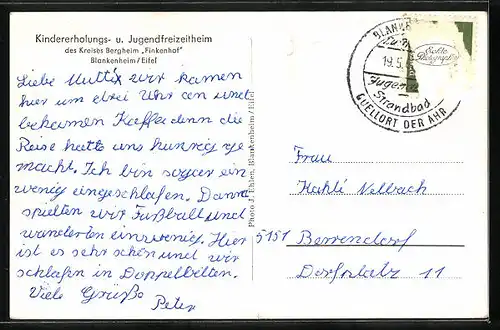 Kindererholungs- u. Jugendfreizeitheim
des Kreises Bergheim „Finkenhof"
Blankenheim/Eifel
Liebe Mutti! Wir kamen
hier um drei Uhr an und
bekamen Kaffe denn die
Reise hatte uns hunrig ge
macht. Ich bin sogar ein
wenig eingeschlafen. Dann
spielten wir Fußball und
wanderten ein wenig. Hier
ist es sehr schön und wir
schlafen in Doppelbetten.
Viele Grüße
Peter
Photo J. Ehlen, Blankenheim/Eifel
BLANKE
19.5.
Jugen
Strandbad
QUELLORT DER AHR
Echte
Photographie
Frau
Kathi Nellbach
5151 Berrendorf
Dorfplatz 11